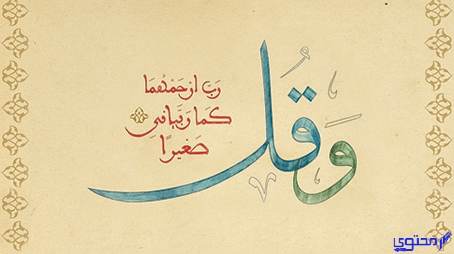 وَقُل
رَبِّ ارْحَمْهُمَا
كَمَا رَبَّيَانِي
صَغِيرًا
محتوى